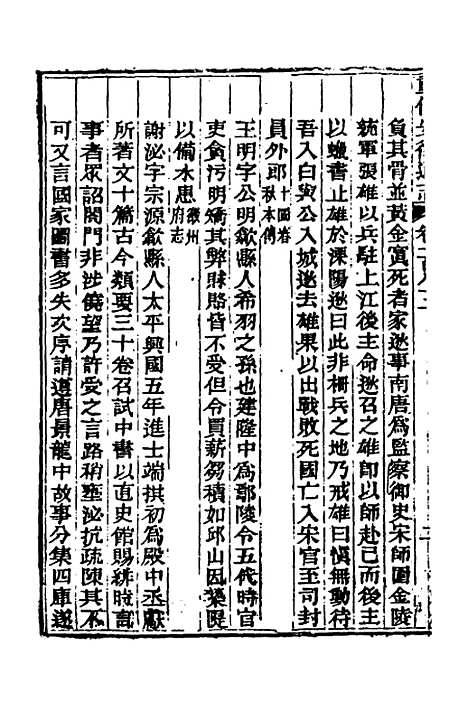 負其骨並黃金寶死者家遂事南唐爲監察御史宋師圍金陵
統軍張雄以兵駐上江後主命遂召之雄即以師赴已而後主
以蠟書止雄於溧陽遂曰此非栅兵之地乃戒雄曰愼無動待
吾入白與公入城遂去雄果以出戰敗死國亡入宋官至司封
員外郎十國春秋本傳
王明字公明歙縣人希羽之孫也建隆中爲鄢陵令五代時官
吏貪污明矯其弊賕賂皆不受但令買薪芻積如邱山因築隄
以備水患徽州府志
謝泌字宗源歙縣人太平興國五年進士端拱初爲殿中丞獻
所著文十篇古今類要三十卷召試中書以直史館賜緋時言
事者眾詔閤門非涉僥望乃許受之言路稍塞泌抗疏陳其不
可又言國家圖書多失次序請遵唐景龍中故事分集四庫遂